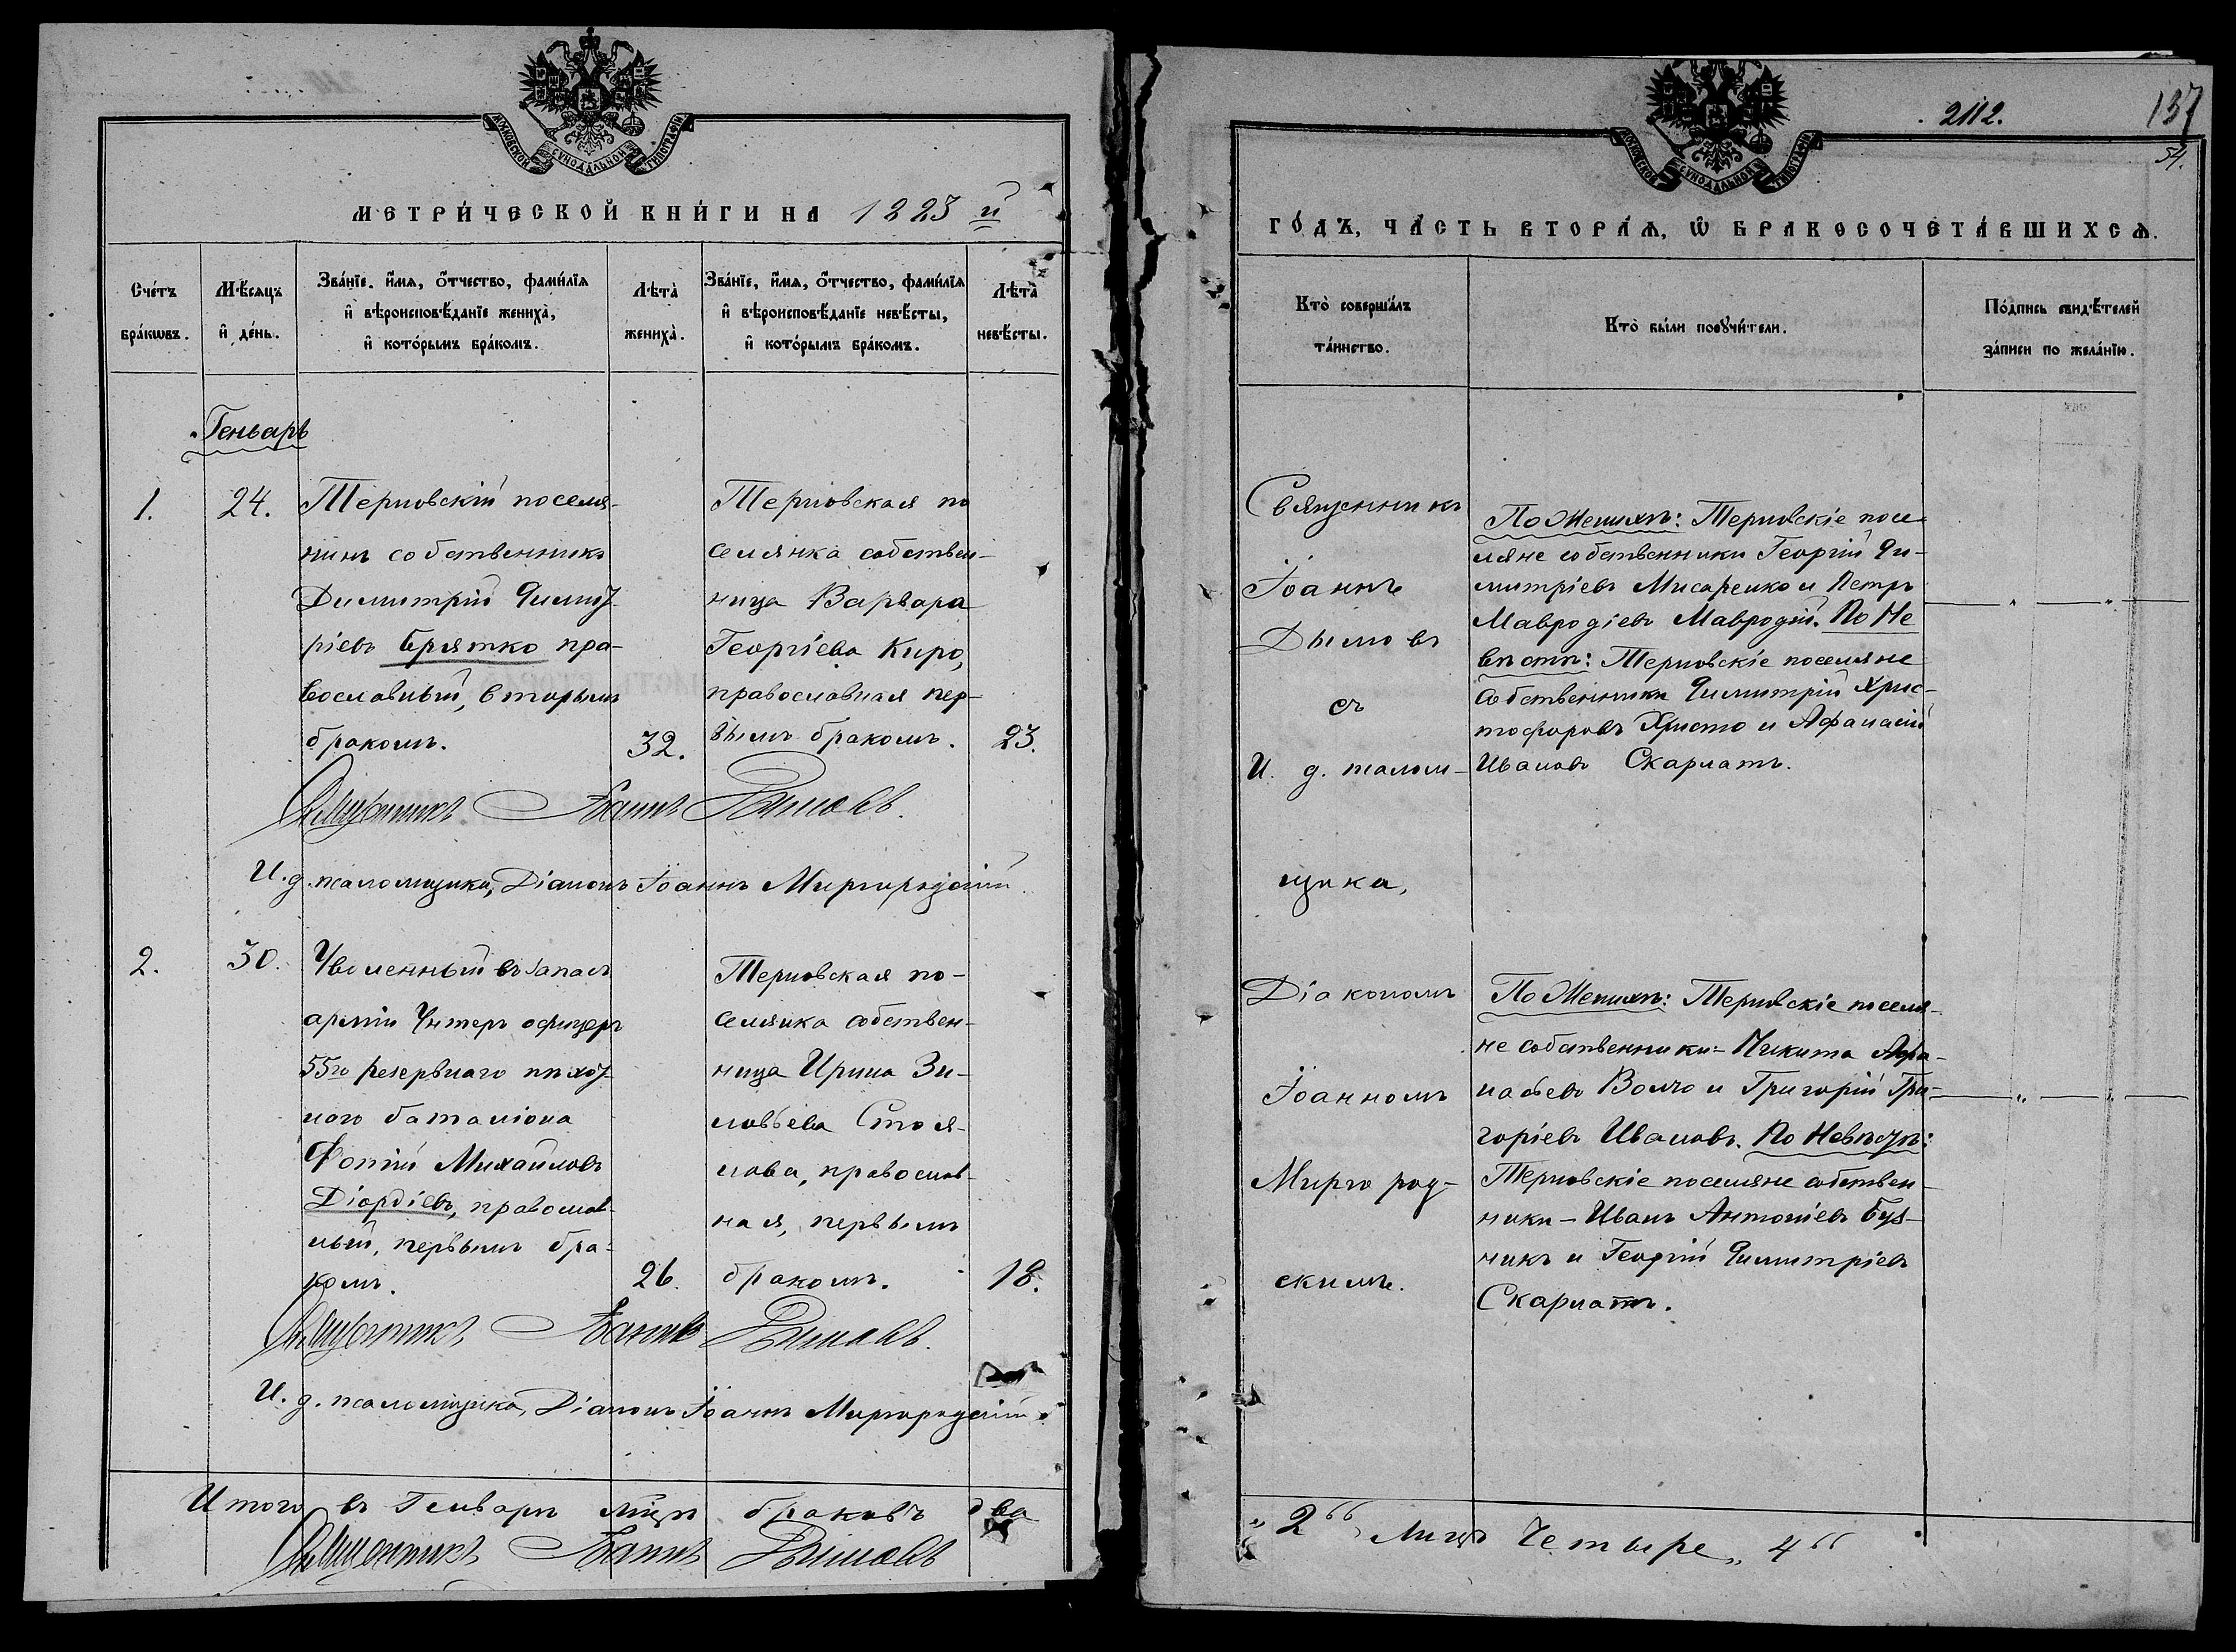 МОСКОВСКОЙ СѴНОДАЛЬНОЙ ТИПОГРАФІИ
МЕТРИЧЕСКОЙ КНИГИ НА 1883 й
Счетъ браковъ.
Мѣсяцъ и день.
Званіе, имя, отчество, фамилія и вѣроисповѣданіе жениха, и которымъ бракомъ.
Лѣта жениха.
Званіе, имя, отчество, фамилія и вѣроисповѣданіе невѣсты, и которымъ бракомъ.
Лѣта невѣсты.
Генварь
1.
24.
Терновскій поселя-
нинъ собственникъ
Димитрій Димит-
ріевъ Братко пра-
вославный, вторымъ
бракомъ.
32.
Терновская по
селянка собствен-
ница Варвара
Георгіева Киро,
православная пер-
вымъ бракомъ.
23.
Священникъ Іоаннъ Дымовъ.
И. д. псаломщика, Діаконъ Іоаннъ Миргородскій.
2.
30.
Уволенный въ запасъ
арміи Унтеръ офицеръ
55го резервнаго пѣхот-
наго баталіона
Фотій Михайловъ
Діордіевъ, православ-
ный, первымъ бра-
комъ.
26.
Терновская по-
селянка собствен-
ница Ирина Зи-
новьева Стоя-
нова, православ-
ная, первымъ
бракомъ.
18.
Священникъ Іоаннъ Дымовъ.
И. д. псаломщика, Діаконъ Іоаннъ Миргородскій.
Итого въ Генварѣ мцѣ браковъ два
Священникъ Іоаннъ Дымовъ
МОСКОВСКОЙ СѴНОДАЛЬНОЙ ТИПОГРАФІИ
2112.
137
54.
ГОДЪ, ЧАСТЬ ВТОРАЯ, Ѡ БРАКОСОЧЕТАВШИХСЯ.
Кто совершалъ таинство.
Кто были поручители.
Подпись свидѣтелей записи по желанію.
Священникъ
Іоаннъ
Дымовъ
съ
И. д. псалом-
щика,
Діакономъ
Іоанномъ
Миргород-
скимъ.
По Женихѣ: Терновскіе посе-
ляне собственники Георгій Ди-
митріевъ Мисаренко и Петръ
Мавродіевъ Мавродій. По Не
вѣстѣ: Терновскіе поселяне
собственники Димитрій Хрис-
тофоровъ Христо и Афанасій
Ивановъ Скарлатъ.
По Женихѣ: Терновскіе поселя-
не собственники - Никита Афа-
насьевъ Волчо и Григорій Гри-
горіевъ Ивановъ. По Невѣстѣ:
Терновскіе поселяне собствен-
ники - Иванъ Антоніевъ Буд-
никъ и Георгій Димитріевъ
Скарлатъ.
„2“ Лицъ Четыре „4“